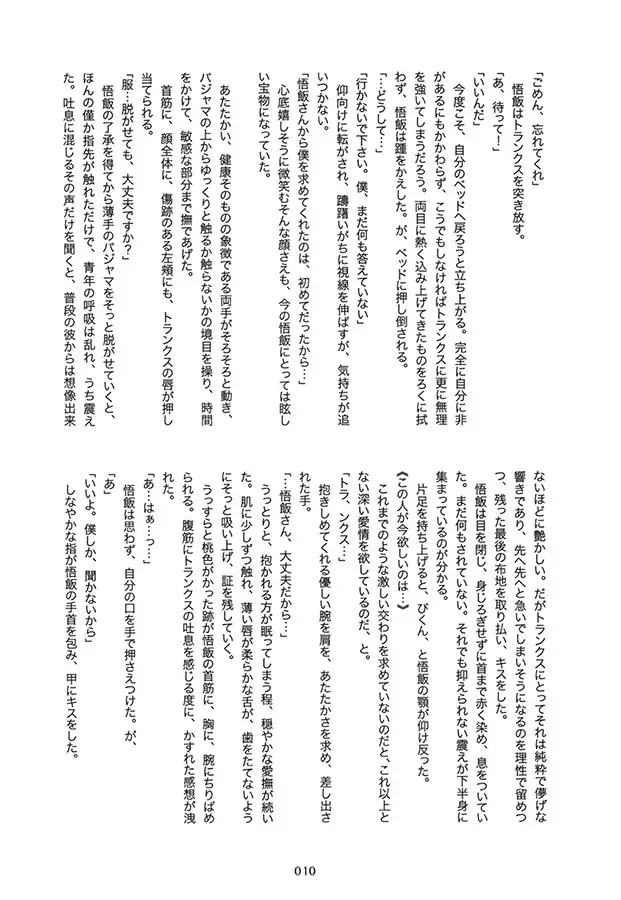 「ごめん、忘れてくれ」
悟飯はトランクスを突き放す。
「あ、待って！」
「いいんだ」
今度こそ、自分のベッドへ戻ろうと立ち上がる。完全に自分に非
があるにもかかわらず、こうでもしなければトランクスに更に無理
を強いてしまうだろう。両目に熱く込み上げてきたものをろくに拭
わず、悟飯は踵をかえした。が、ベッドに押し倒される。
「…どうして…」
「行かないで下さい。僕、まだ何も答えていない」
仰向けに転がされ、躊躇いがちに視線を伸ばすが、気持ちが追
いつかない。
「悟飯さんから僕を求めてくれたのは、初めてだったから…」
心底嬉しそうに微笑むそんな顔さえも、今の悟飯にとっては眩し
い宝物になっていた。
あたたかい、健康そのものの象徴である両手がそろそろと動き、
パジャマの上からゆっくりと触るか触らないかの境目を操り、時間
をかけて、敏感な部分まで撫であげた。
首筋に、顔全体に、傷跡のある左頬にも、トランクスの唇が押し
当てられる。
「服…脱がせても、大丈夫ですか？」
悟飯の了承を得てから薄手のパジャマをそっと脱がせていくと、
ほんの僅か指先が触れただけで、青年の呼吸は乱れ、うち震え
た。吐息に混じるその声だけを聞くと、普段の彼からは想像出来
ないほどに艶かしい。だがトランクスにとってそれは純粋で儚げな
響きであり、先へ先へと急いでしまいそうになるのを理性で留めつ
つ、残った最後の布地を取り払い、キスをした。
悟飯は目を閉じ、身じろぎせずに首まで赤く染め、息をついてい
た。まだ何もされていない。それでも抑えられない震えが下半身に
集まっているのが分かる。
片足を持ち上げると、びくん、と悟飯の顎が仰け反った。
《この人が今欲しいのは…》
これまでのような激しい交わりを求めていないのだと、これ以上と
ない深い愛情を欲しているのだ、と。
「トラ、ンクス…」
抱きしめてくれる優しい腕を肩を、あたたかさを求め、差し出さ
れた手。
「…悟飯さん、大丈夫だから…」
うっとりと、抱かれる方が眠ってしまう程、穏やかな愛撫が続い
た。肌に少しずつ触れ、薄い唇が柔らかな舌が、歯をたてないよう
にそっと吸い上げ、証を残していく。
うっすらと桃色がかった跡が悟飯の首筋に、胸に、腕にちりばめ
られる。腹筋にトランクスの吐息を感じる度に、かすれた感想が洩
れた。
「あ…はぁ…っ…」
悟飯は思わず、自分の口を手で押さえつけた。が、
「あ」
「いいよ。僕しか、聞かないから」
しなやかな指が悟飯の手首を包み、甲にキスをした。
010